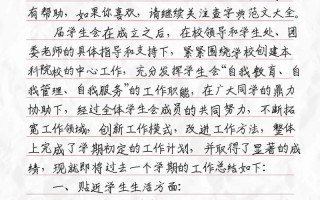 有帮助，如果你喜欢，请继续关注查字典范文大全。
届学生会在成立之后，在校领导和学生处、团
委老师的具体指导和支持下，紧紧围绕学校创建本
科院校的中心工作，充分发挥学生会“自我教育、自
我管理、自我服务”的工作职能，在广大同学的鼎力
协助下，经过全体学生会成员的共同努力，不断拓
宽工作领域，创新工作模式，改进工作方法，整体
上完成了学期初定的工作计划，并取得了显著的成
绩，现就即将过去一个学期的工作总结如下：
一、贴近学生生活方面：